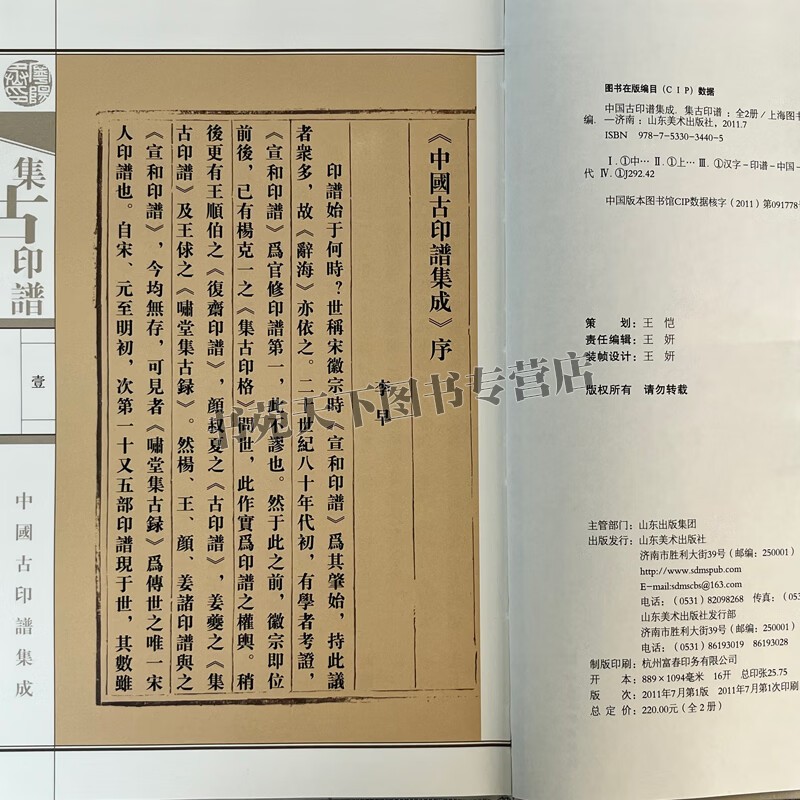 集古印譜
壹
中國古印譜集成
《中國古印譜集成》序
李早
印譜始于何時？世稱宋徽宗時《宣和印譜》爲其肇始，持此議
者衆多，故《辭海》亦依之。二十世紀八十年代初，有學者考證，
《宣和印譜》爲官修印譜第一，此不謬也。然于此之前，徽宗即位
前後，已有楊克一之《集古印格》問世，此作實爲印譜之權輿。稍
後更有王順伯之《復齋印譜》，顔叔夏之《古印譜》，姜夔之《集
古印譜》及王俅之《嘯堂集古録》。然楊、王、顔、姜諸印譜與之
《宣和印譜》，今均無存，可見者《嘯堂集古録》爲傳世之唯一宋
人印譜也。自宋、元至明初，次第一十又五部印譜現于世，其數雖
图书在版编目（CIP）数据
中国古印谱集成．集古印谱：全2册／上海图书
编．—济南：山东美术出版社，2011.7
ISBN 978-7-5330-3440-5
Ⅰ.①中… Ⅱ.①上… Ⅲ.①汉字－印谱－中国－
代 Ⅳ.①J292.42
中国版本图书馆CIP数据核字（2011）第091778号
策 划：王 恺
责任编辑：王 妍
装帧设计：王 妍
版权所有 请勿转载
主管部门：山东出版集团
出版发行：山东美术出版社
济南市胜利大街39号（邮编：250001）
http://www.sdmspub.com
E-mail:sdmscbs@163.com
电话：（0531）82098268 传真：（0531
山东美术出版社发行部
济南市胜利大街39号（邮编：250001）
电话：（0531）86193019 86193028
制版印刷：杭州富春印务有限公司
开 本：889×1094毫米 16开 总印张25.75
版 次：2011年7月第1版 2011年7月第1次印刷
总 定 价：220.00元（全2册）
书苑天下图书专营店